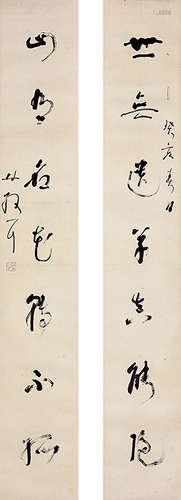 世無遺草真能隱
癸亥春日
山有名花轉不孤
林散耳